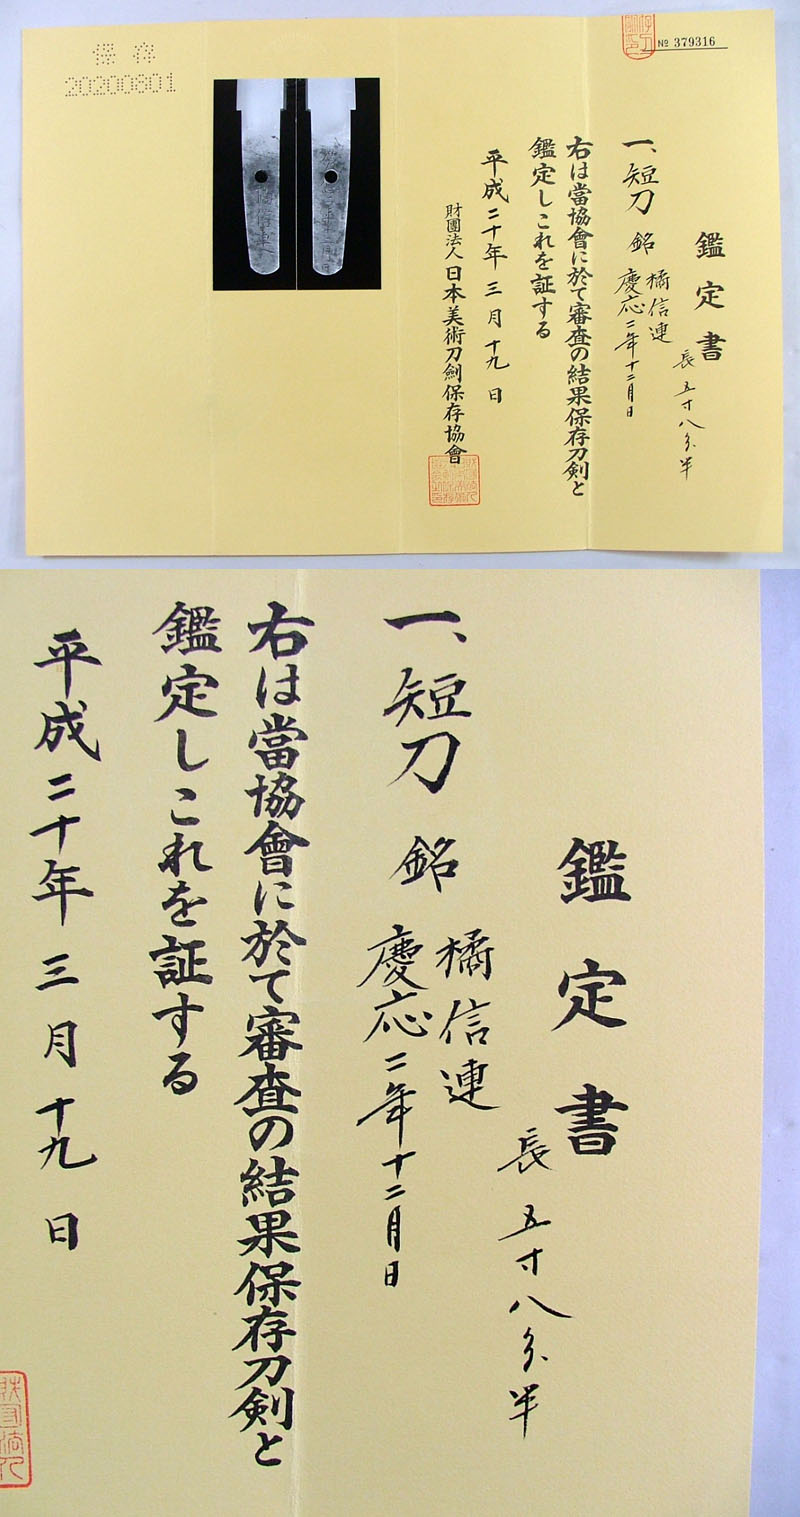 保存
20200801
№ 379316
鑑定書
長 五寸八分半
一、短刀 銘 橘信連
慶応二年十二月日
右は當協會に於て審査の結果保存刀剣と
鑑定しこれを証する
平成二十年 三月 十九日
財團法人 日本美術刀劍保存協會
鑑定書
長 五寸八分半
一、短刀 銘 橘信連
慶応二年十二月日
右は當協會に於て審査の結果保存刀剣と
鑑定しこれを証する
平成二十年 三月 十九日